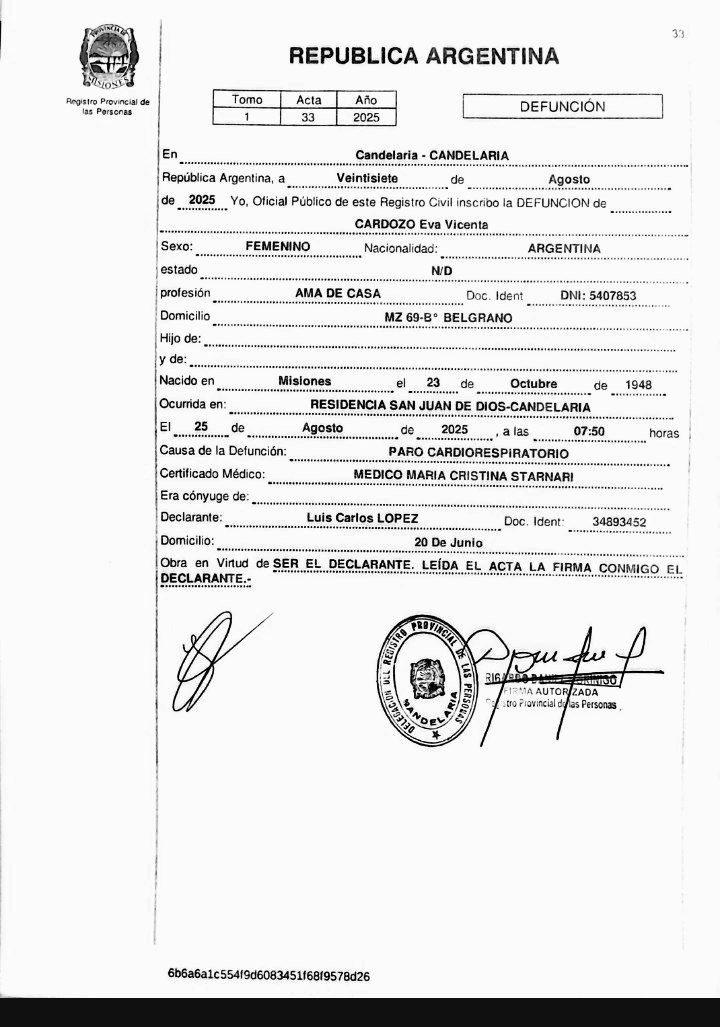 33
PROVINCIA DE
MISIONES
Registro Provincial de
las Personas
REPUBLICA ARGENTINA
Tomo Acta Año
1 33 2025
DEFUNCIÓN
En Candelaria - CANDELARIA
República Argentina, a Veintisiete de Agosto
de 2025 Yo, Oficial Público de este Registro Civil inscribo la DEFUNCION de
CARDOZO Eva Vicenta
Sexo: FEMENINO Nacionalidad: ARGENTINA
estado N/D
profesión AMA DE CASA Doc. Ident DNI: 5407853
Domicilio MZ 69-B° BELGRANO
Hijo de:
y de:
Nacido en Misiones el 23 de Octubre de 1948
Ocurrida en: RESIDENCIA SAN JUAN DE DIOS-CANDELARIA
El 25 de Agosto de 2025 , a las 07:50 horas
Causa de la Defunción: PARO CARDIORESPIRATORIO
Certificado Médico: MEDICO MARIA CRISTINA STARNARI
Era cónyuge de:
Declarante: Luis Carlos LOPEZ Doc. Ident: 34893452
Domicilio: 20 De Junio
Obra en Virtud de SER EL DECLARANTE. LEÍDA EL ACTA LA FIRMA CONMIGO EL
DECLARANTE.-
DELEGACION DEL REGISTRO PROVINCIAL DE LAS PERSONAS
CANDELARIA
FIRMA AUTORIZADA
Registro Provincial de las Personas
6b6a6a1c554f9d6083451f68f9578d26